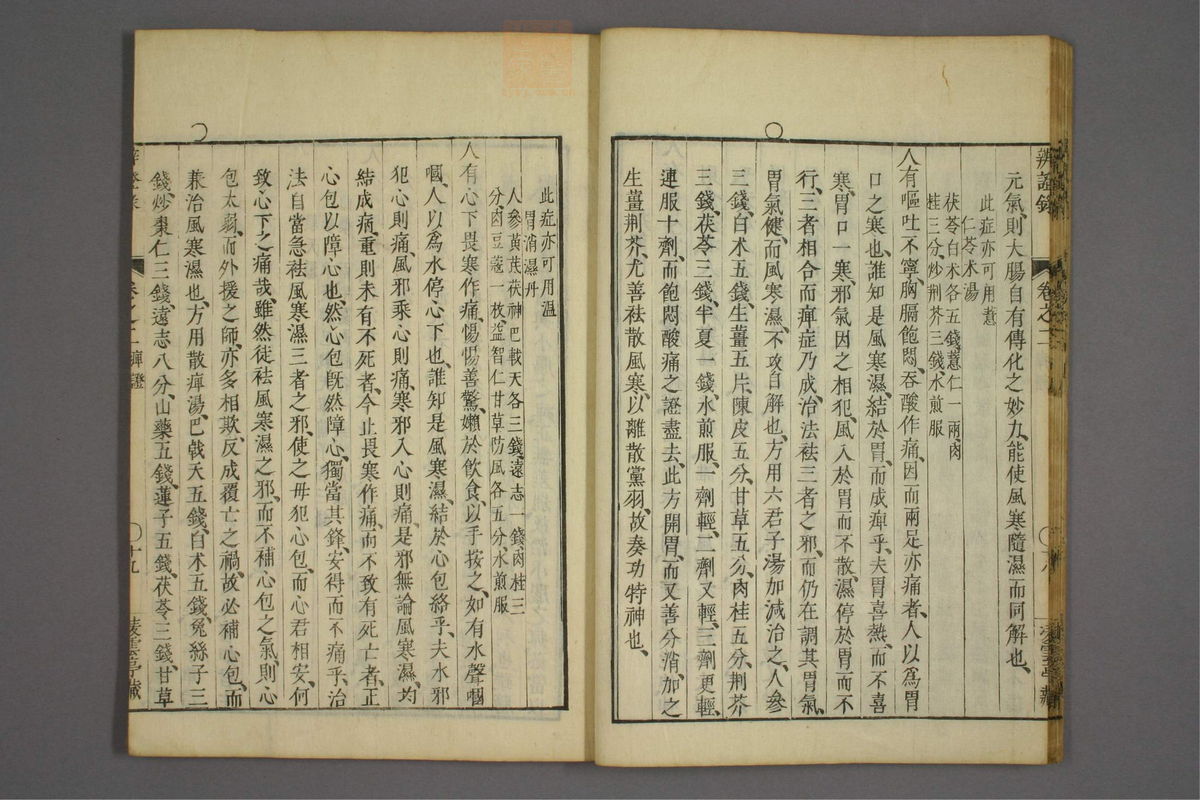 辨證錄
卷之二
元氣則大腸自有傳化之妙力能使風寒隨濕而同解也
此症亦可用薏
仁苓术湯
茯苓白术各五錢薏仁一兩肉
桂三分炒荆芥三錢水煎服
人有嘔吐不寧胸膈飽悶吞酸作痛因而兩足亦痛者人以爲胃
口之寒也誰知是風寒濕結於胃而成痺乎夫胃喜熱而不喜
寒胃口一寒邪氣因之相犯風入於胃而不散濕停於胃而不
行三者相合而痺症乃成治法祛三者之邪而仍在調其胃氣
胃氣健而風寒濕不攻自解也方用六君子湯加減治之人參
三錢白术五錢生薑五片陳皮五分甘草五分肉桂五分荆芥
三錢茯苓三錢半夏一錢水煎服一劑輕二劑又輕三劑更輕
連服十劑而飽悶酸痛之證盡去此方開胃而又善分消加之
生薑荆芥尤善祛散風寒以離散黨羽故奏功特神也
此症亦可用溫
胃消濕丹
人參黃芪茯神巴戟天各三錢遠志一錢肉桂三
分肉豆蔻一枚益智仁甘草防風各五分水煎服
人有心下畏寒作痛惕惕善驚懶於飲食以手按之如有水聲嘓
嘓人以爲水停心下也誰知是風寒濕結於心包絡乎夫水邪
犯心則痛風邪乘心則痛寒邪入心則痛是邪無論風寒濕均
結成病重則未有不死者今止畏寒作痛而不致有死亡者正
心包以障心也然心包旣然障心獨當其鋒安得而不痛乎治
法自當急祛風寒濕三者之邪使之毋犯心包而心君相安何
致心下之痛哉雖然徒祛風寒濕之邪而不補心包之氣則心
包太弱而外援之師亦多相欺反成覆亡之禍故必補心包而
兼治風寒濕也方用散痺湯巴戟天五錢白术五錢兔絲子三
錢炒棗仁三錢遠志八分山藥五錢蓮子五錢茯苓三錢甘草
卷之二 痺證
十九